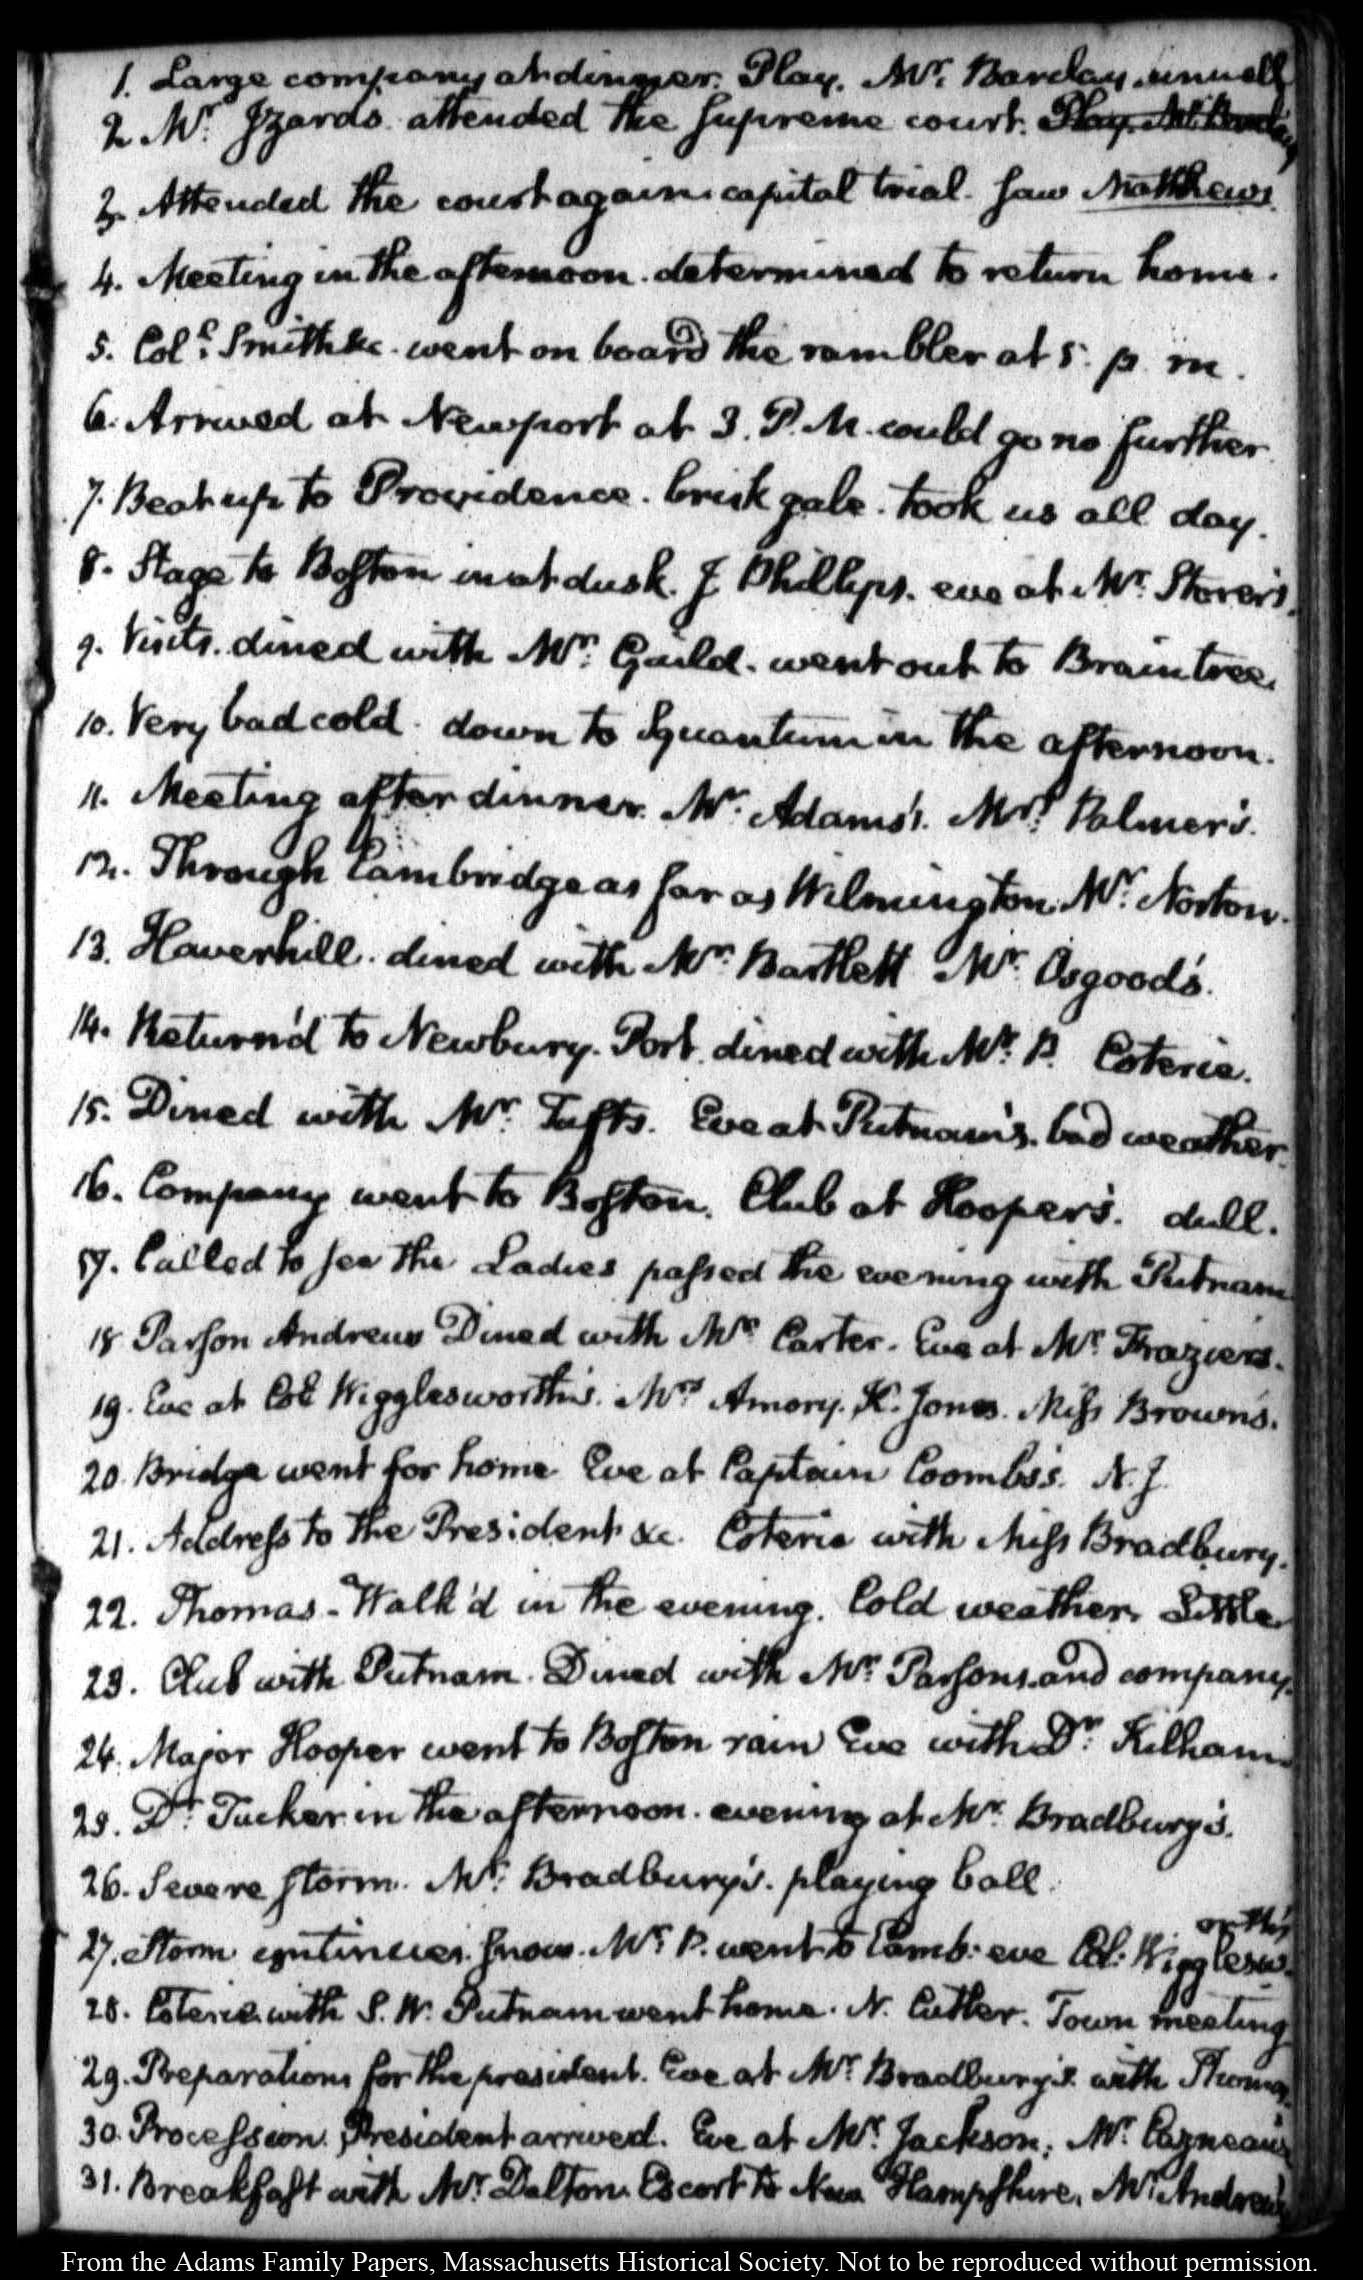 1. Large company at dinner. Play. Mr. Barclay. unwell
2. Mr. Izards. attended the Supreme court. Play. Mr. Barclay
3. Attended the court again. capital trial. Saw Matthews
4. Meeting in the afternoon. determined to return home.
5. Coll. Smith &c. went on board the rambler at 5. p. m.
6. Arrived at Newport at 3. P. M. could go no further
7. Beat up to Providence. brisk gale. took us all day.
8. Stage to Boston in at dusk. J Phillips. eve at Mr. Storer's.
9. Visits. dined with Mr. Guild. went out to Braintree.
10. Very bad cold. down to Squantum in the afternoon.
11. Meeting after dinner. Mr. Adams's. Mrs. Palmer's.
12. Through Cambridge as far as Wilmington. Mr. Norton.
13. Haverhill. dined with Mr. Bartlett Mr. Osgood's.
14. Return'd to Newbury-Port. dined with Mr. P. Coterie.
15. Dined with Mr. Tufts. Eve at Putnam's. bad weather.
16. Company went to Boston. Club at Hooper's. dull.
17. Called to see the Ladies passed the evening with Putnam
18 Parson Andrews Dined with Mr. Carter. Eve at Mr. Frazier's.
19. Eve at Col. Wigglesworth's. Mrs. Amory. K. Jones. Miss Brown's.
20. Bridge went for home Eve at Captain Coombs's. N. J.
21. Address to the President &c. Coterie with Miss Bradbury.
22. Thomas-Walk'd in the evening. Cold weather. Little
23. Club with Putnam. Dined with Mr. Parsons and company.
24. Major Hooper went to Boston rain Eve with Dr. Kilham.
25. Dr. Tucker in the afternoon. evening at Mr. Bradbury's.
26. Severe storm. Mr. Bradbury's. playing ball.
27. Storm continues. snow. Mr. P. went to Camb: eve Col. Wigglesw-
orth's
28. Coterie with S. W. Putnam went home. N. Cutler. Town meeting
29. Preparations for the president. Eve at Mr. Bradbury's with Thomas.
30. Procession. President arrived. Eve at Mr. Jackson, Mr. Cazneau's
31. Breakfast with Mr. Dalton. Escort to New Hampshire. Mr. Andrews
From the Adams Family Papers, Massachusetts Historical Society. Not to be reproduced without permission.